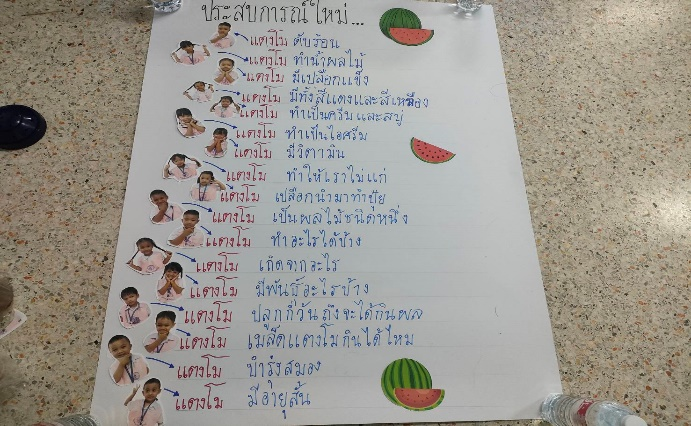 ประสบการณ์ใหม่...
แตงโม ดับร้อน
แตงโม ทำน้ำผลไม้
แตงโม มีเปลือกแข็ง
แตงโม มีทั้งสีแดงและสีเหลือง
แตงโม ทำเป็นครีมและสบู่
แตงโม ทำเป็นไอศรีม
แตงโม มีวิตามิน
แตงโม ทำให้เราไม่แก่
แตงโม เปลือกนำมาทำปุ๋ย
แตงโม เป็นผลไม้ชนิดหนึ่ง
แตงโม ทำอะไรได้บ้าง
แตงโม เกิดจากอะไร
แตงโม มีพันธุ์อะไรบ้าง
แตงโม ปลูกกี่วันถึงจะได้กินผล
แตงโม เมล็ดแตงโมกินได้ไหม
แตงโม บำรุงสมอง
แตงโม มีอายุสั้น